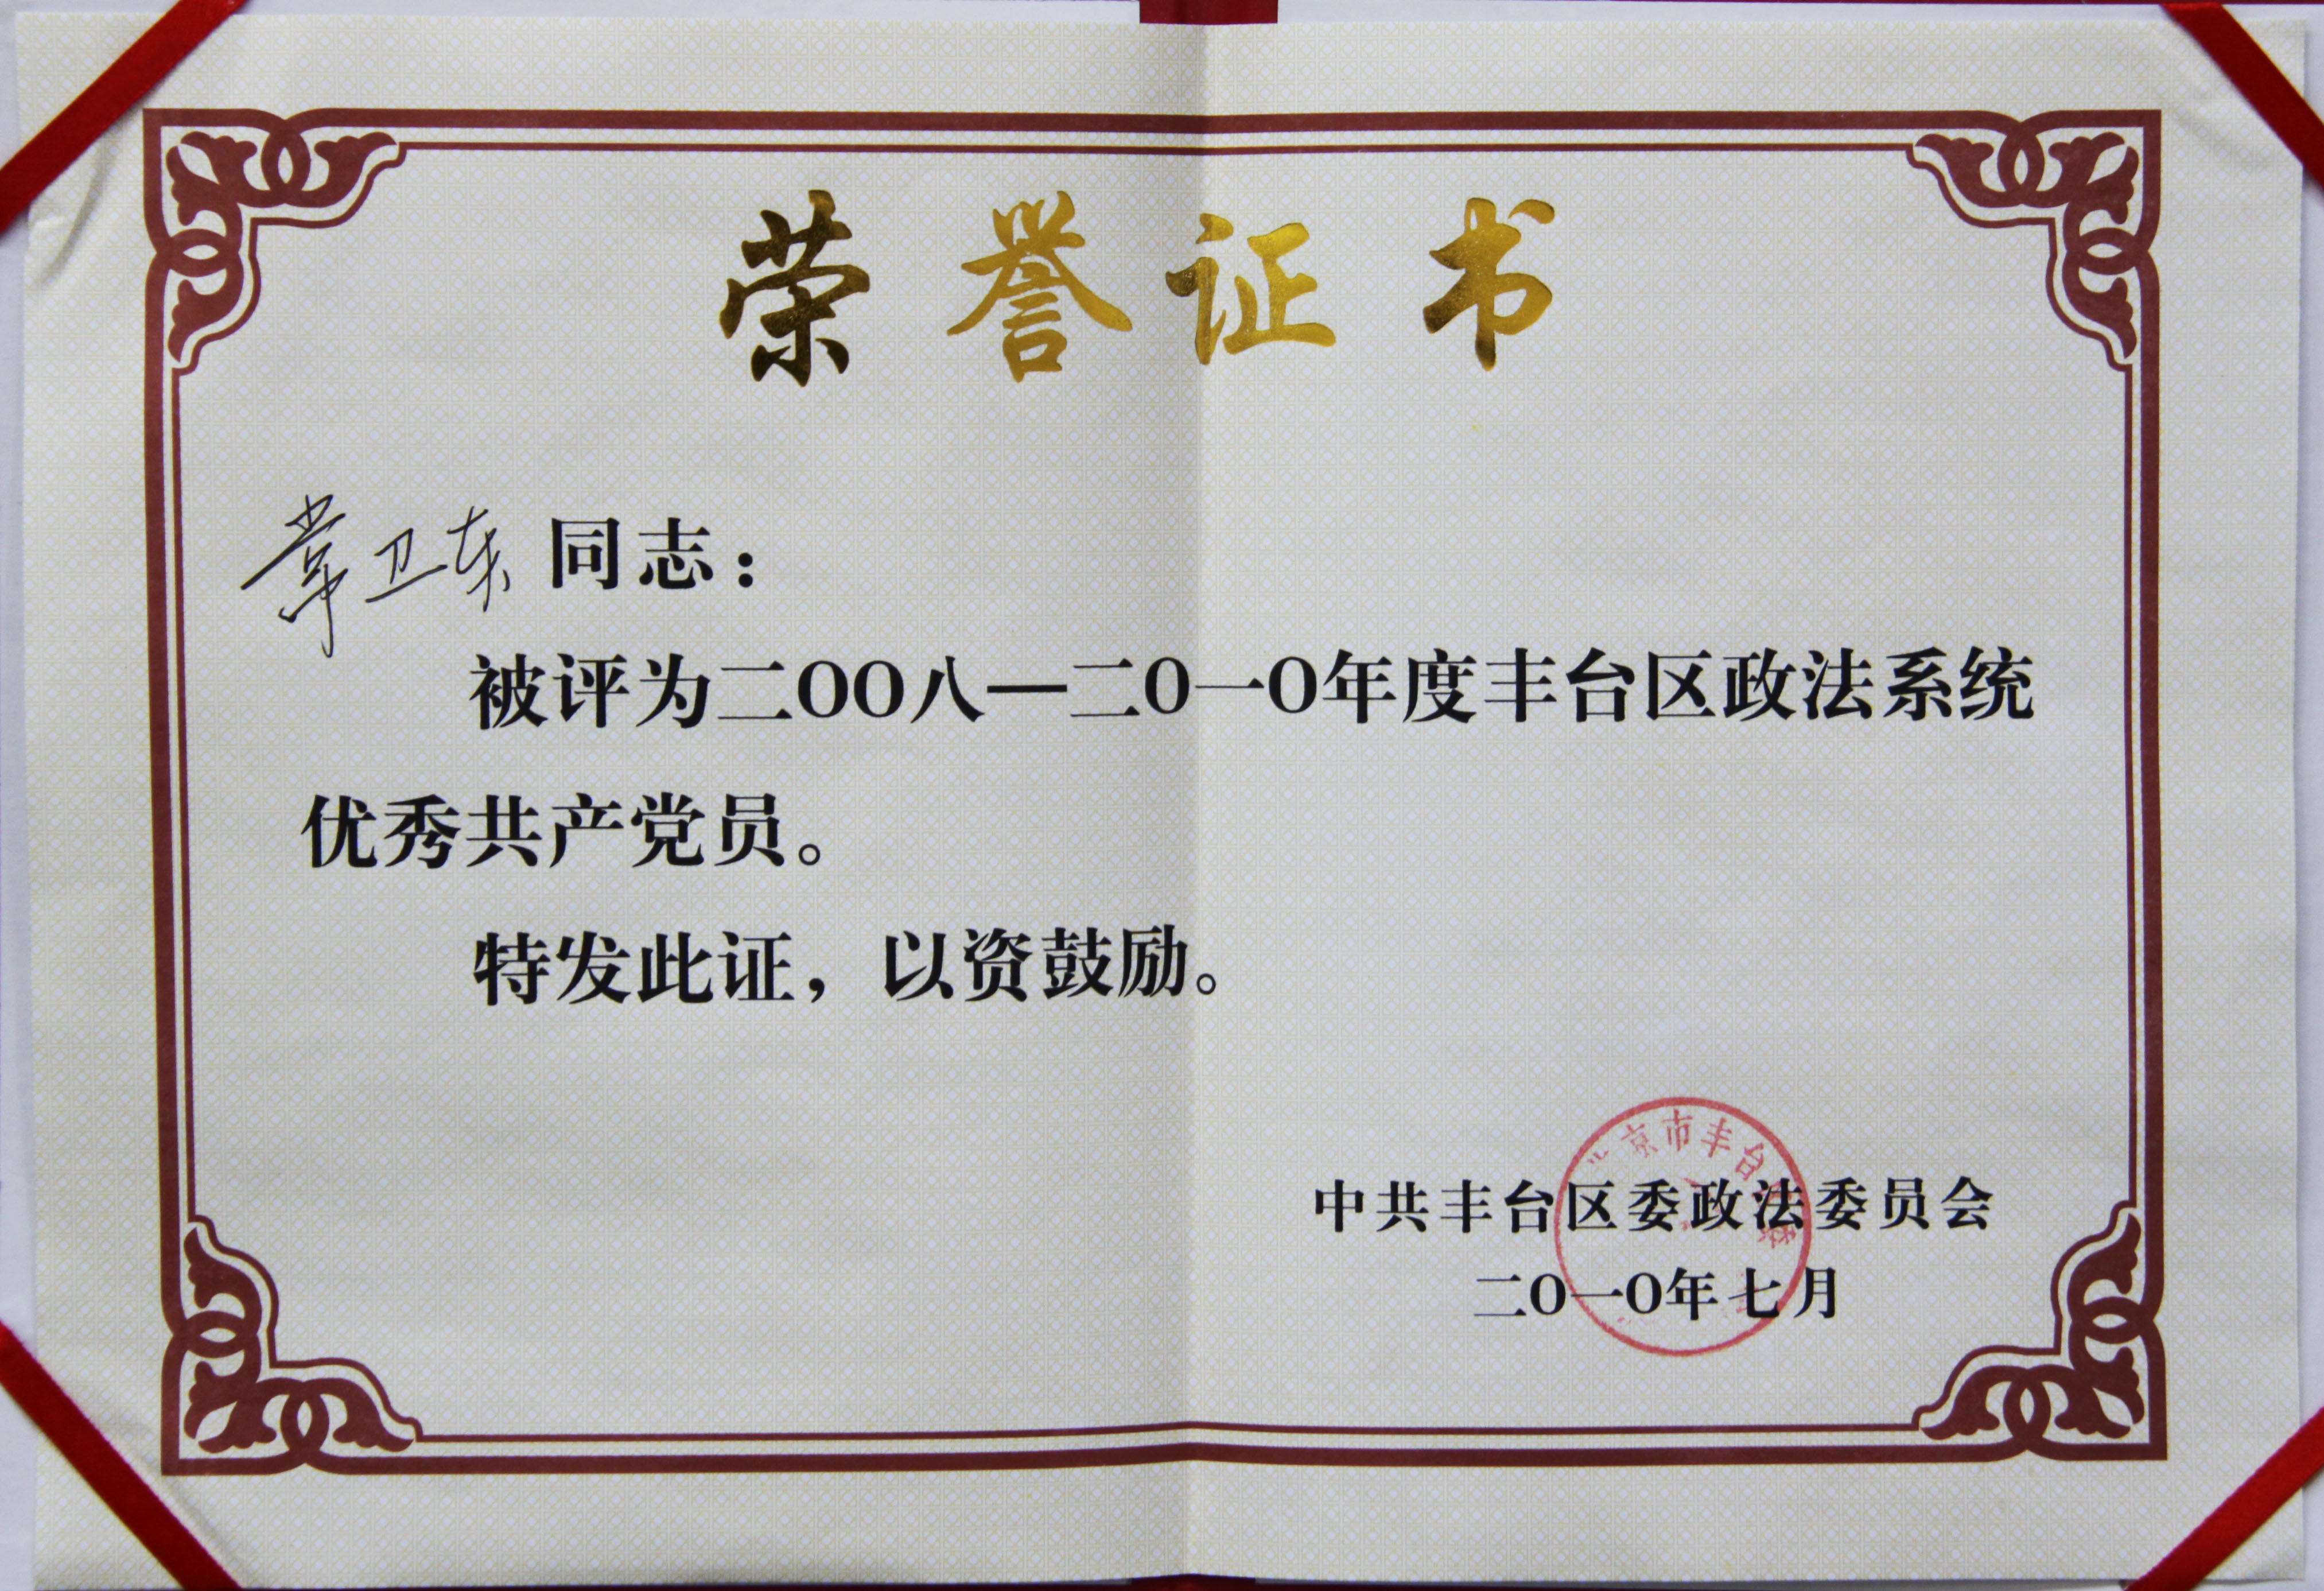 荣誉证书
常卫东同志：
被评为二OO八—二O一O年度丰台区政法系统
优秀共产党员。
特发此证，以资鼓励。
京市丰台
中共丰台区委政法委员会
二O一O年七月